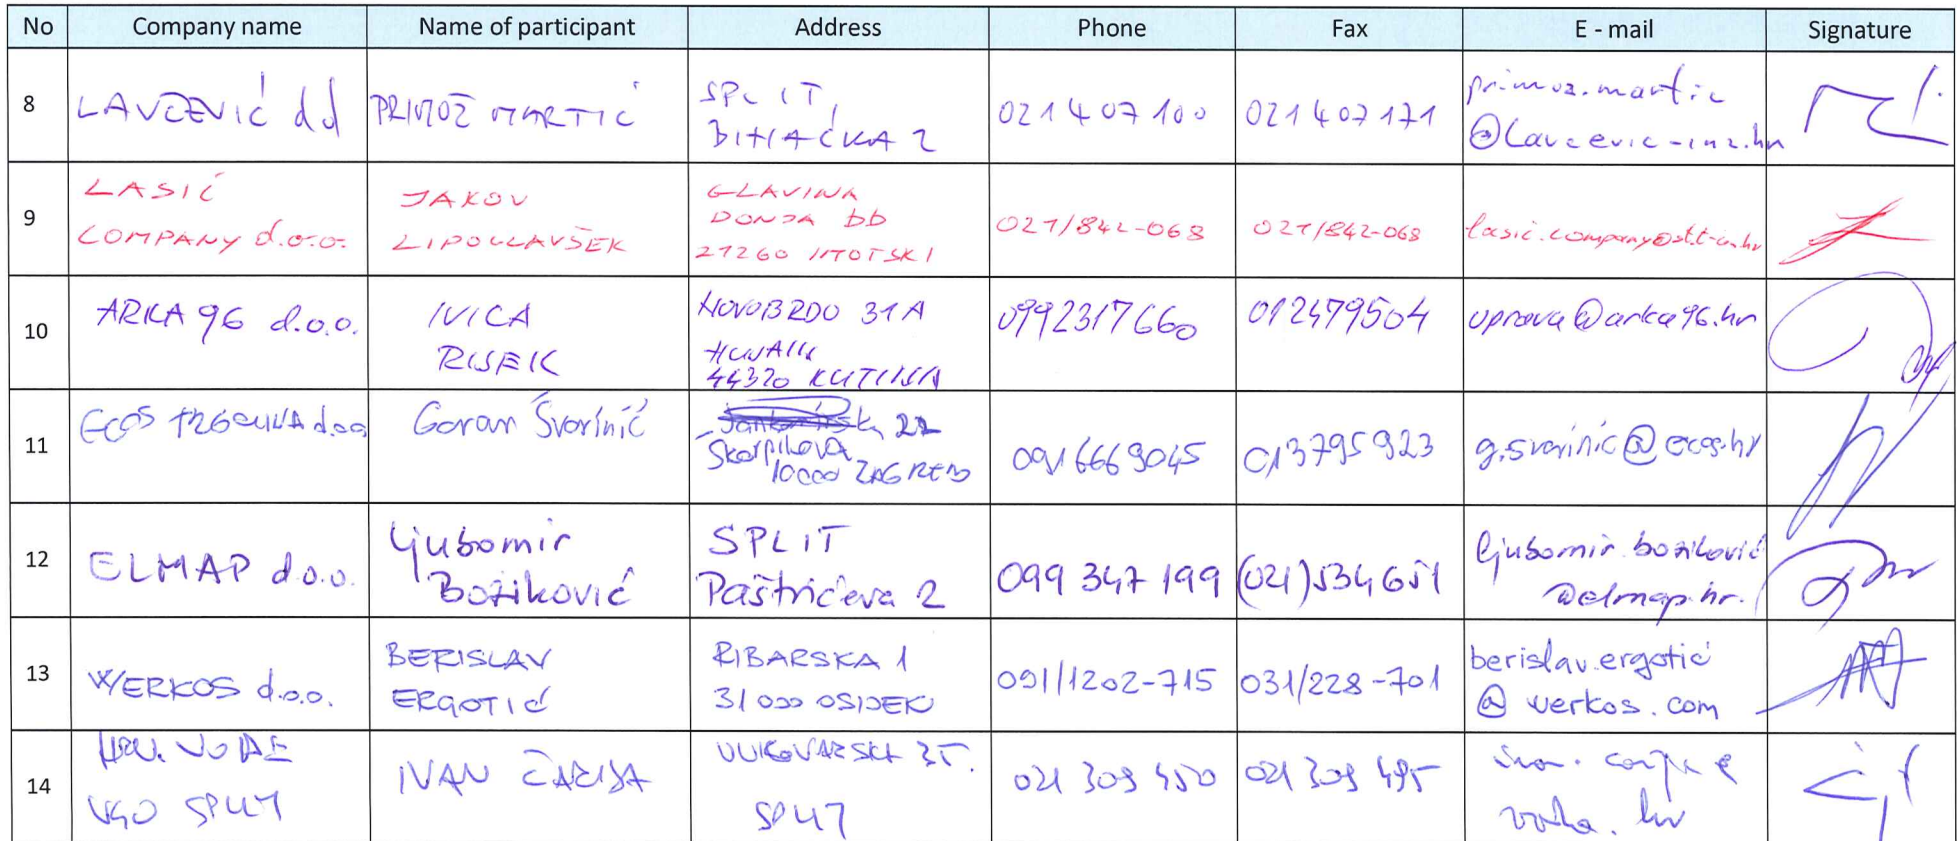 No Company name Name of participant Address Phone Fax E - mail Signature
8 LAVČEVIĆ d d PRIMOŽ MARTIĆ SPLIT, BIHAĆKA 2 021 407 100 021 407 171 primoz.martic @lavcevic-inz.hr
9 LASIĆ COMPANY d.o.o. JAKOV LIPOGLAVŠEK GLAVINA DONJA bb 21260 IMOTSKI 021/842-068 021/842-068 lasic.company@st.t-com.hr
10 ARKA 96 d.o.o. IVICA RISEK NOVO BRDO 31A 44320 KUTINA 0992317660 012479504 uprava@arka96.hr
11 ECOS TRGOVINA d.o.o. Goran Svorinić 22 Škorpikova 10000 ZAGREB 0916669045 013795923 g.svorinic@ecos.hr
12 ELMAP d.o.o. Ljubomir Božiković SPLIT Paštrićeva 2 099 347 199 (021)534651 ljubomir.bozikovic @elmap.hr
13 WERKOS d.o.o. BERISLAV ERGOTIĆ RIBARSKA 1 31000 OSIJEK 091/1202-715 031/228-701 berislav.ergotić @ werkos.com
14 HRV. VODE VGO SPLIT IVAN VUKOVARSKA 35. SPLIT 021 309 450 021 309 495